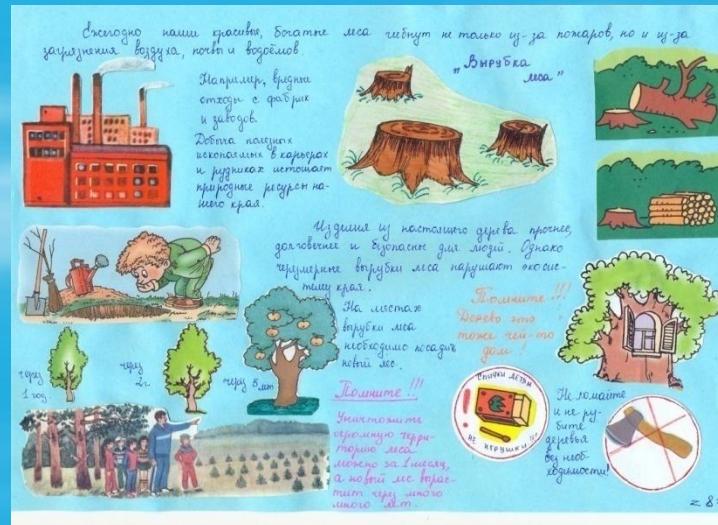 Ежегодно наши красивые, богатые леса гибнут не только из-за пожаров, но и из-за
загрязнения воздуха, почвы и водоёмов.
Например, вредные
отходы с фабрик
и заводов.
Добыча полезных
ископаемых в карьерах
и рудниках истощает
природные ресурсы на-
шего края.
„Вырубка
леса"
Изделия из настоящего дерева прочнее,
долговечнее и безопасные для людей. Однако
черумерные вырубки леса нарушают экосис-
тему края.
На местах
вырубки леса
необходимо посадить
новый лес.
через
1 год
через
2 г.
через 5 лет
Помните!!!
Дерево это
тоже чей-то
дом!
Помните!!!
Уничтожить
огромную терри-
торию леса
можно за 1 месяц,
а новый лес вырас-
тит через много
много лет.
СПИЧКИ ДЕТЯМ
НЕ ИГРУШКИ!!!
Не ломайте
и не ру-
бите
деревья
без необ-
ходимости!